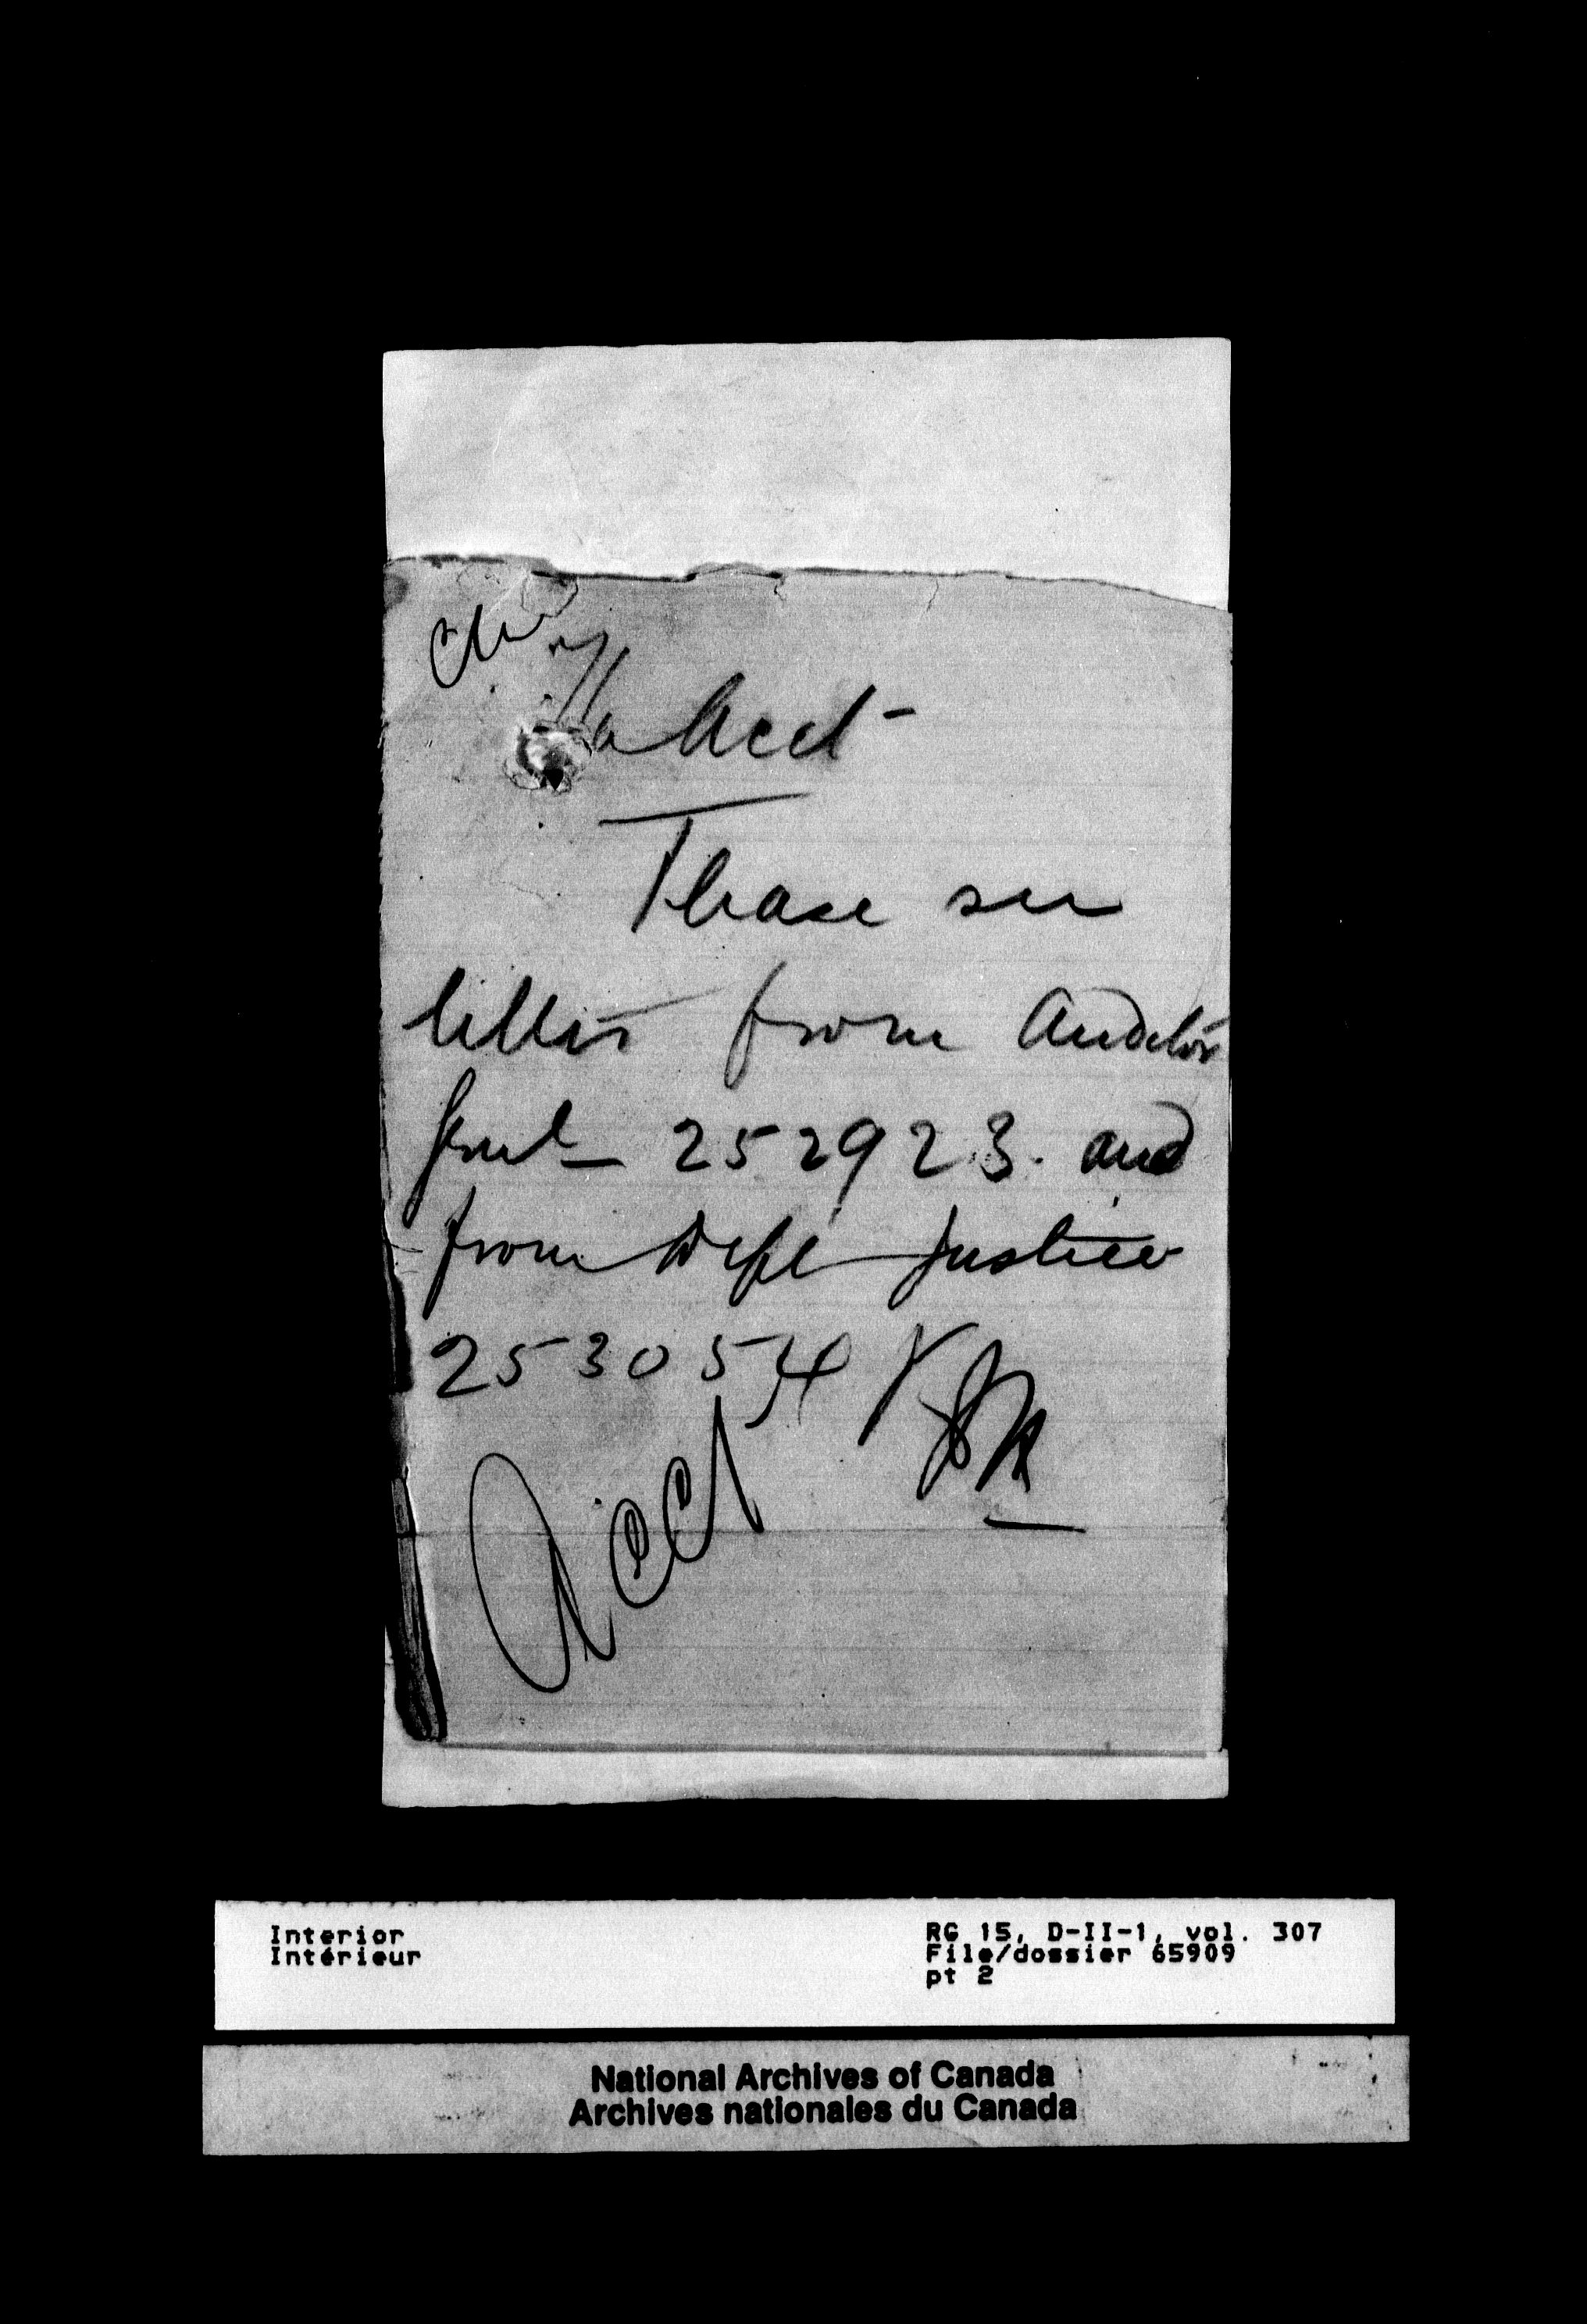 Acct
Please see
letter from Auditor
Genl 252923. and
from Dept Justice
253054
Acct
Interior
Intérieur
RG 15, D-II-1, vol. 307
File/dossier 65909
pt 2
National Archives of Canada
Archives nationales du Canada